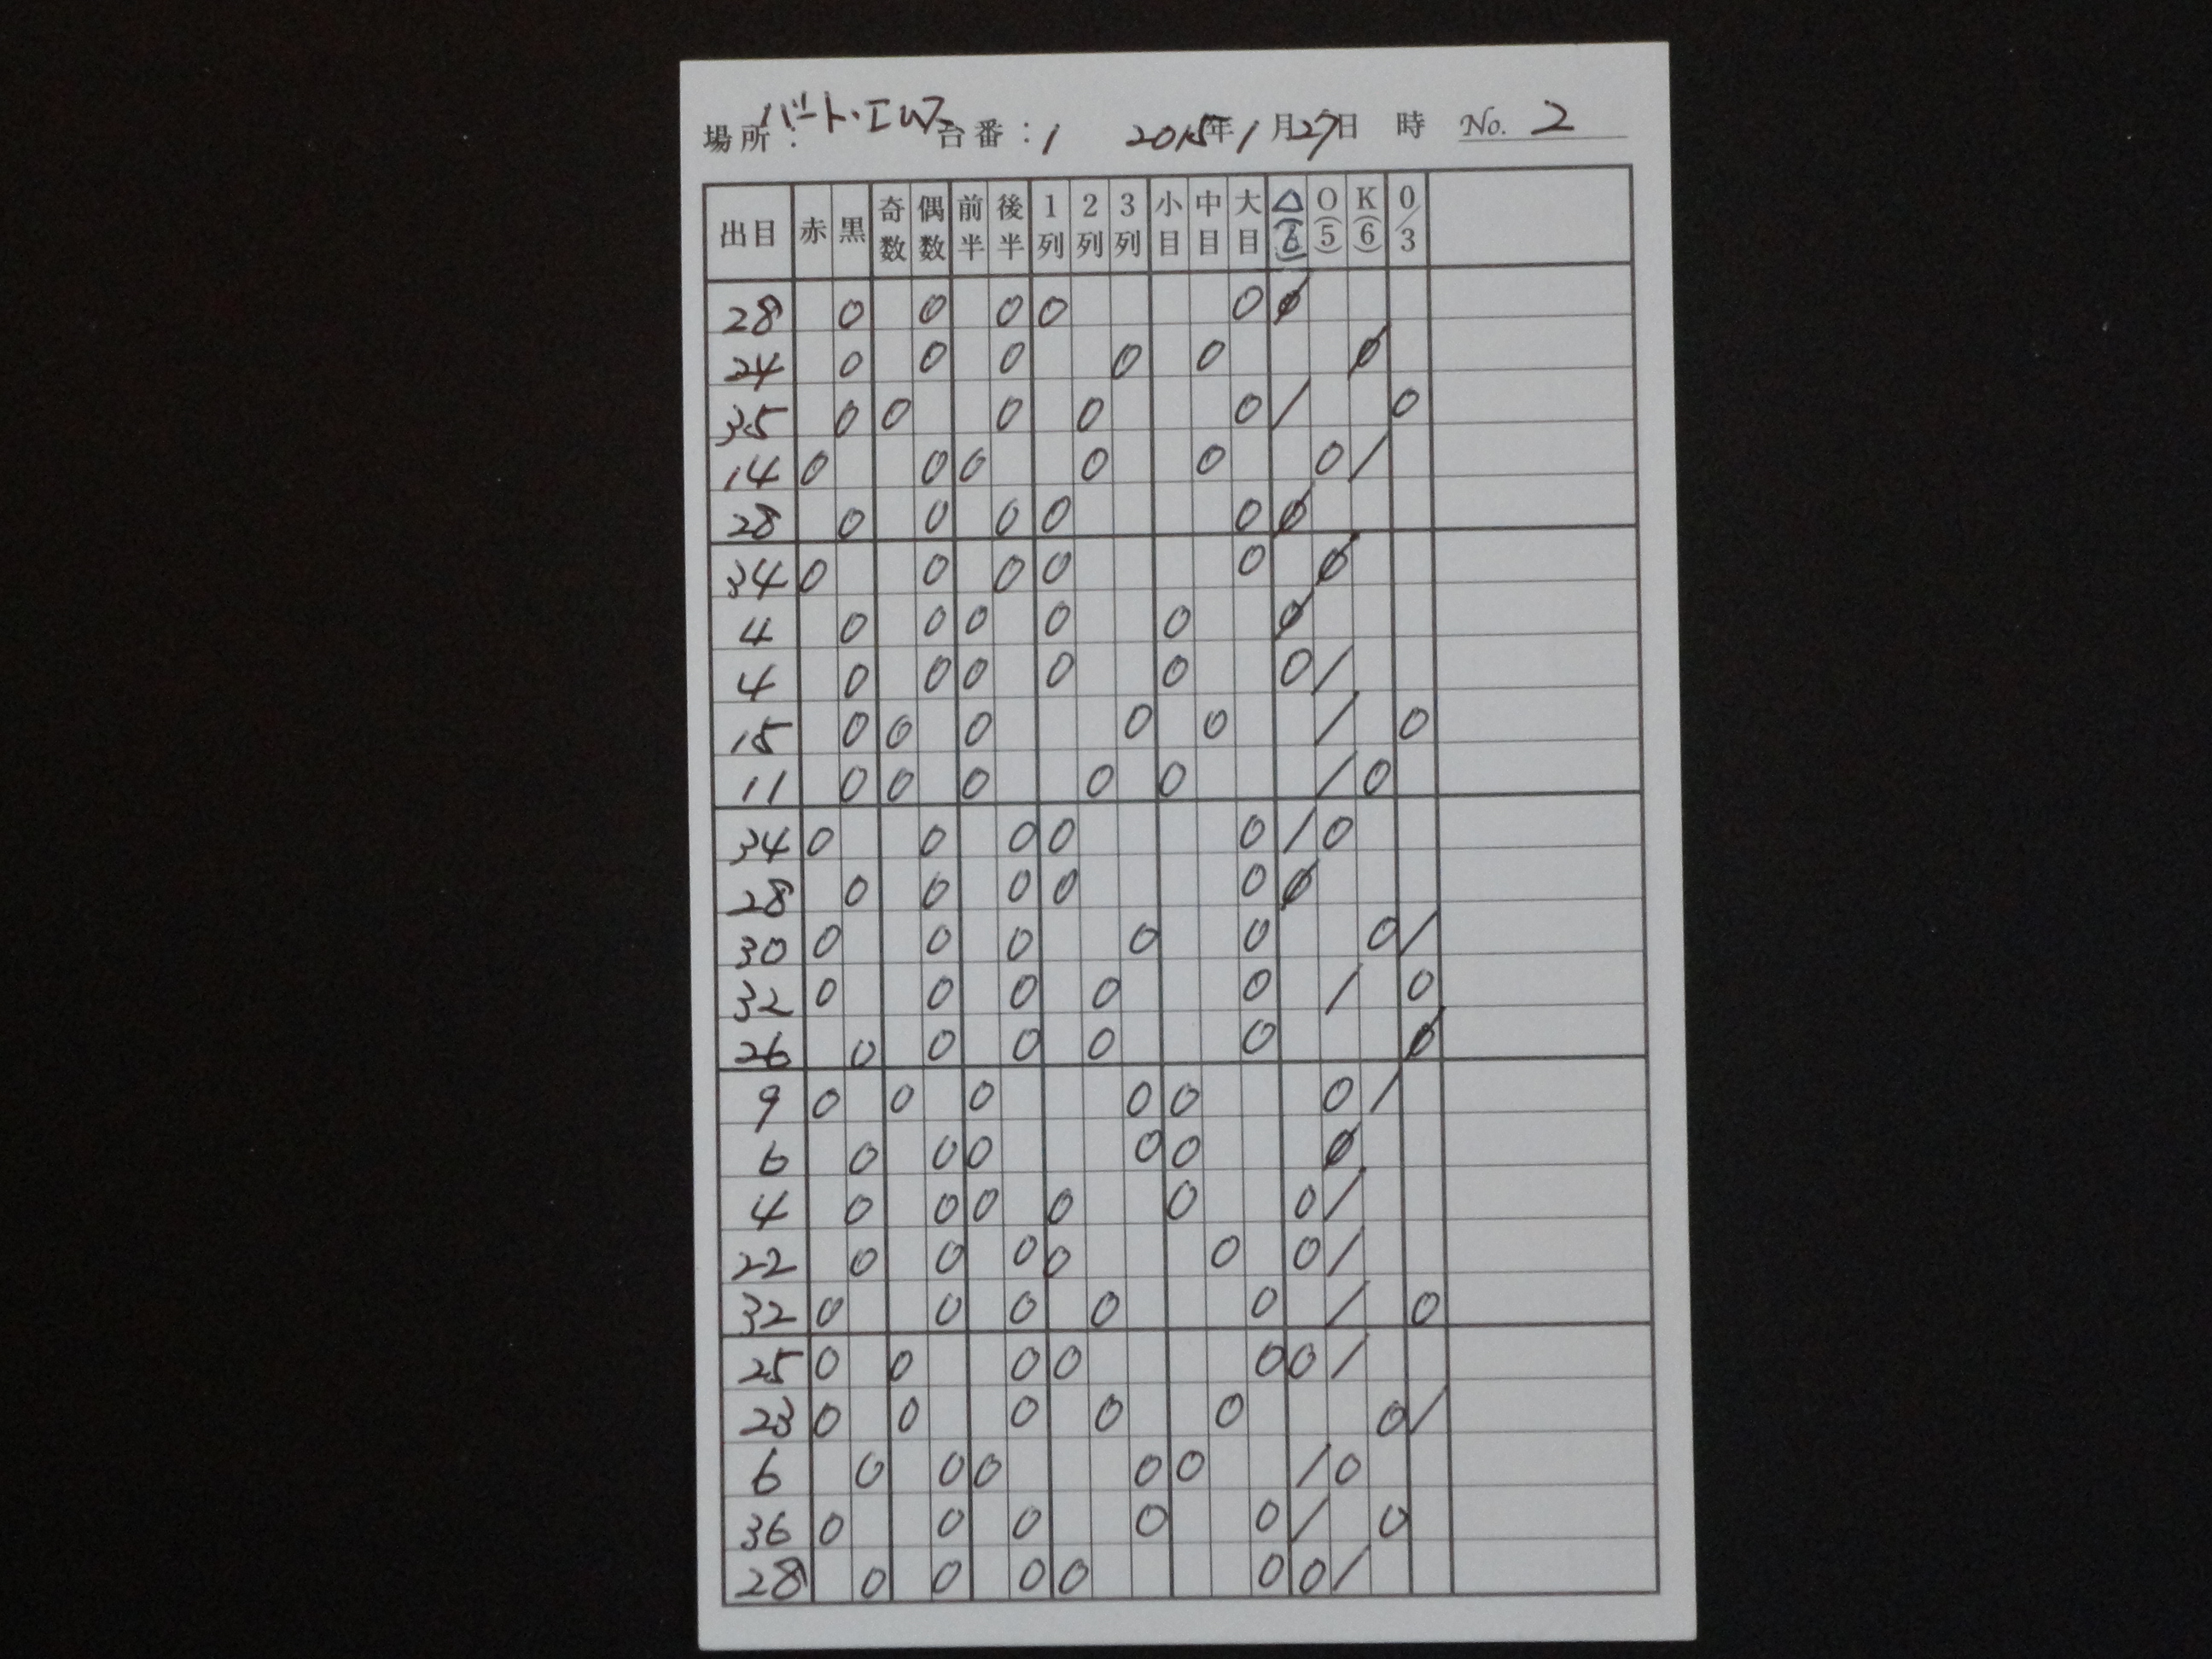 場所：バート・エムス 台番：1 2015年1月27日 時 No. 2
出目 赤 黒 奇数 偶数 前半 後半 1列 2列 3列 小目 中目 大目 △ O(5) K(6) 0/3
28 0 0 0 0 0 0/
24 0 0 0 0 0 0/
35 0 0 0 0 0 / 0
14 0 0 0 0 0 0 /
28 0 0 0 0 0 0/
34 0 0 0 0 0 0/
4 0 0 0 0 0 0/
4 0 0 0 0 0 0 /
15 0 0 0 0 0 / 0
11 0 0 0 0 0 / 0
34 0 0 0 0 0 / 0
28 0 0 0 0 0 0/
30 0 0 0 0 0 0 /
32 0 0 0 0 0 / 0
26 0 0 0 0 0 0/
9 0 0 0 0 0 0 /
6 0 0 0 0 0 0/
4 0 0 0 0 0 0 /
22 0 0 0 0 0 0 /
32 0 0 0 0 0 / 0
25 0 0 0 0 0 0 /
23 0 0 0 0 0 0 /
6 0 0 0 0 0 / 0
36 0 0 0 0 0 / 0
28 0 0 0 0 0 0 /